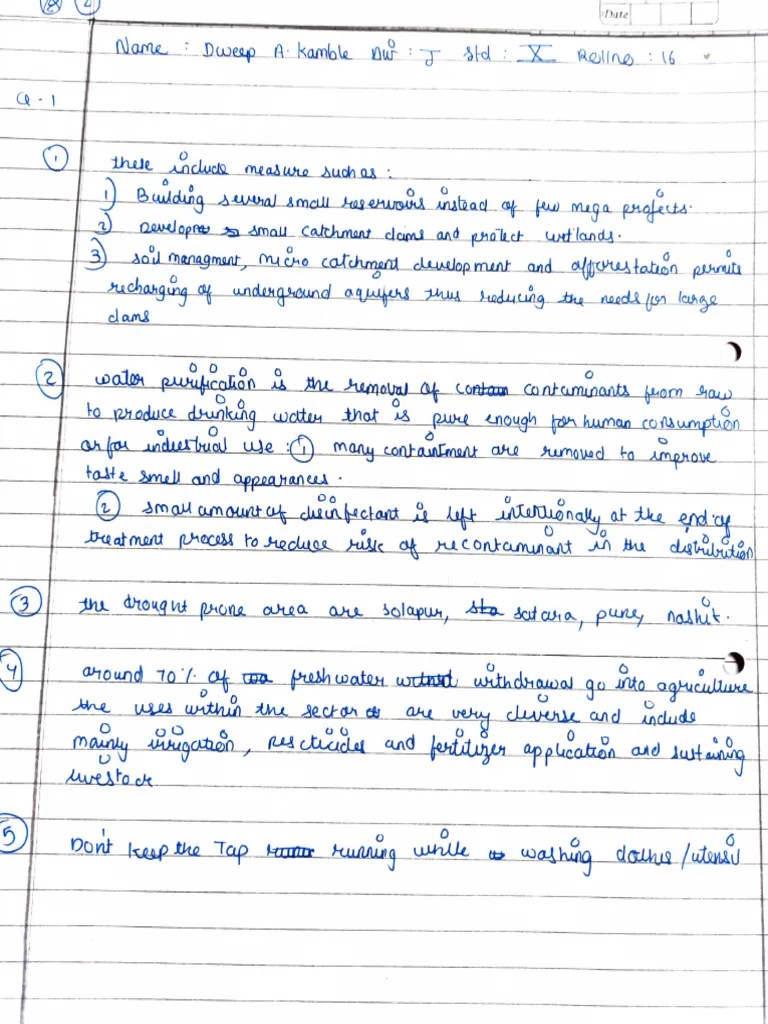 2
Date
Name : Dweep A. Kamble Div : J Std : X Rollno : 16
Q - 1
1 these include measure such as :
1) Building several small reservoirs instead of few mega projects.
2) Develop small catchment dams and protect wetlands.
3) soil managment, micro catchment development and afforestation permits
recharging of underground aquifers thus reducing the needs for large
dams
2 water purification is the removal of contaminants from raw
to produce drinking water that is pure enough for human consumption
or for industrial use : 1 many containment are removed to improve
taste smell and appearances.
2 small amount of disinfectant is left intentionally at the end of
treatment process to reduce risk of recontaminant in the distribution
3 the drought prone area are solapur, satara, pune, nashik.
4 around 70% of freshwater withdrawal go into agriculture
the uses within the sector are very diverse and include
mainly irrigation, pescticides and fertilizer application and sustaining
livestock
5 Don't keep the Tap running while washing clothes /utensil